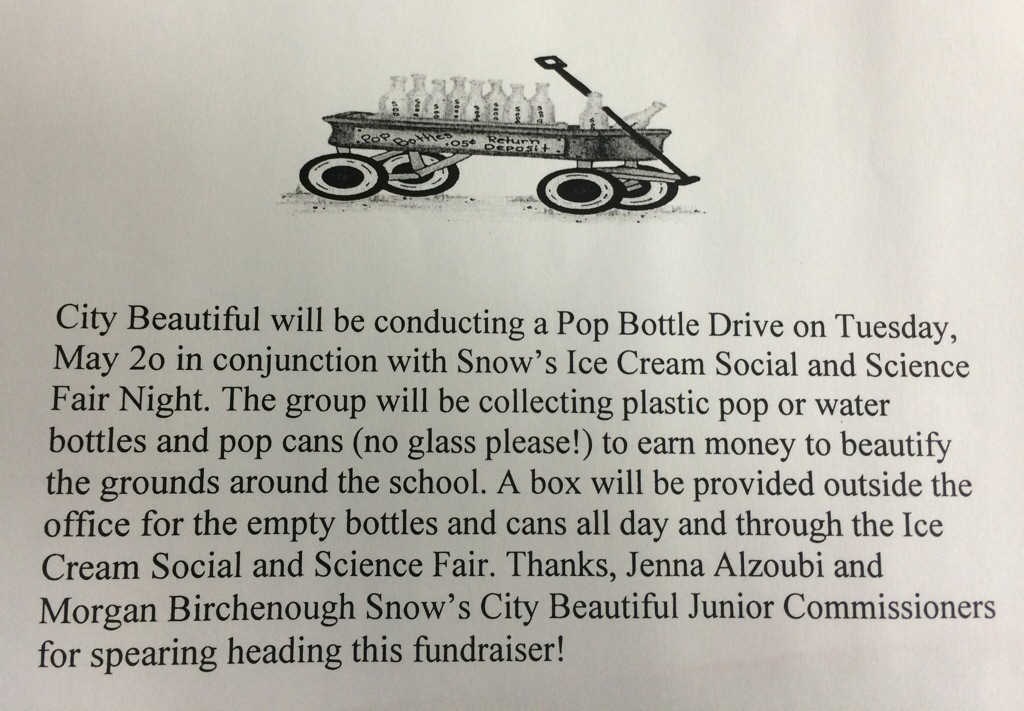 Pop Bottles .05¢ Return Deposit
City Beautiful will be conducting a Pop Bottle Drive on Tuesday,
May 2o in conjunction with Snow's Ice Cream Social and Science
Fair Night. The group will be collecting plastic pop or water
bottles and pop cans (no glass please!) to earn money to beautify
the grounds around the school. A box will be provided outside the
office for the empty bottles and cans all day and through the Ice
Cream Social and Science Fair. Thanks, Jenna Alzoubi and
Morgan Birchenough Snow's City Beautiful Junior Commissioners
for spearing heading this fundraiser!